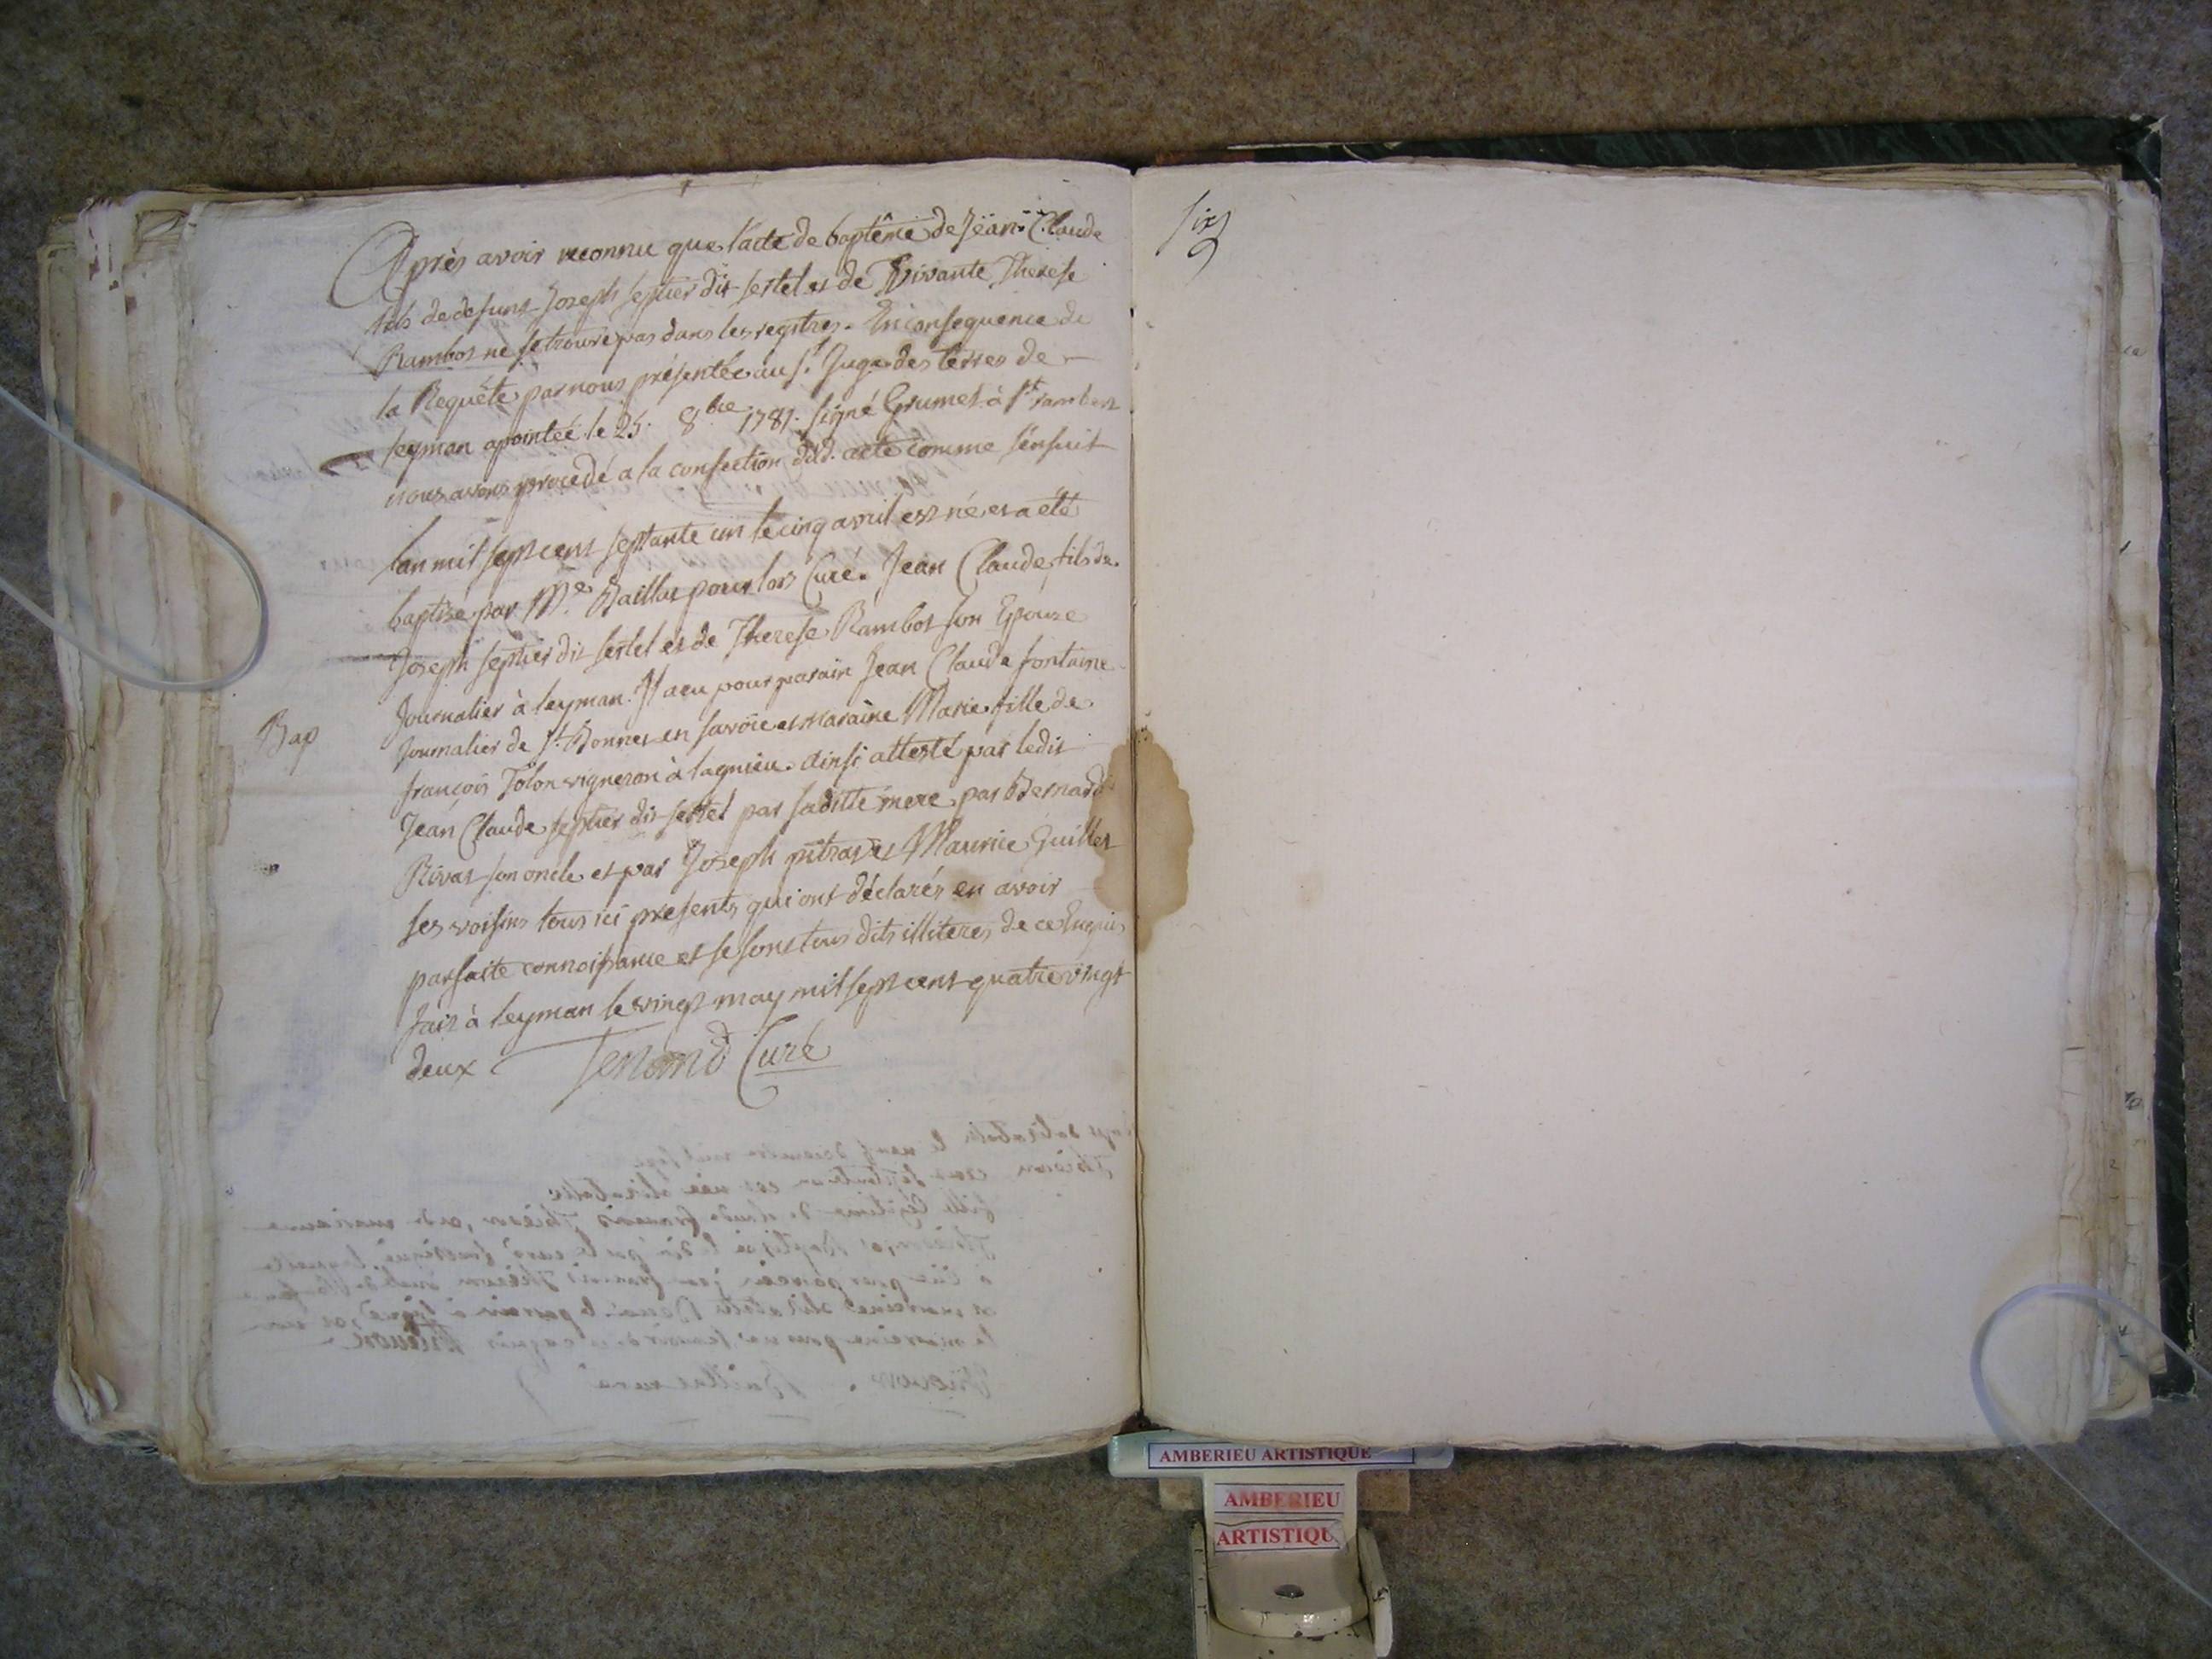 Après avoir reconnu que l'acte de baptême de Jean-Claude
fils de defunt Joseph Septier dit sertel et de Vivante Therese
Rambot ne se trouve pas dans les registres. En consequence de
la Requête par nous présentée au Sr. Juge des terres de
leyman apointée le 25. 8bre 1781. signé Grumet à St rambert
nous avons procédé a la confection dud. acte comme s'ensuit
L'an mil sept cent septante un le cinq avril est né et a été
baptisé par Me. Baillat pour lors Curé. Jean Claude fils de
Joseph Septier dit sertel et de Therese Rambot son Epouse
Journalier à leyman. Il a eu pour parain Jean Claude fontaine
Journalier de St. Bonnet en savoïe et maraine Marie fille de
Bap
françois Tolon vigneron à lagnieu. ainsi attesté par ledit
Jean Claude Septier dit sertel par sadite mere par Bernard
Rivat son oncle et par Joseph pitrat et Maurice Guillet
ses voisins tous ici presents qui ont déclarés en avoir
parfaite connoissance et se sont tous dits illiteres de ce Enquis
fait à leyman le vingt may mil sept cent quatre vingt
deux
Curé
six
AMBERIEU ARTISTIQUE
AMBERIEU
ARTISTIQU